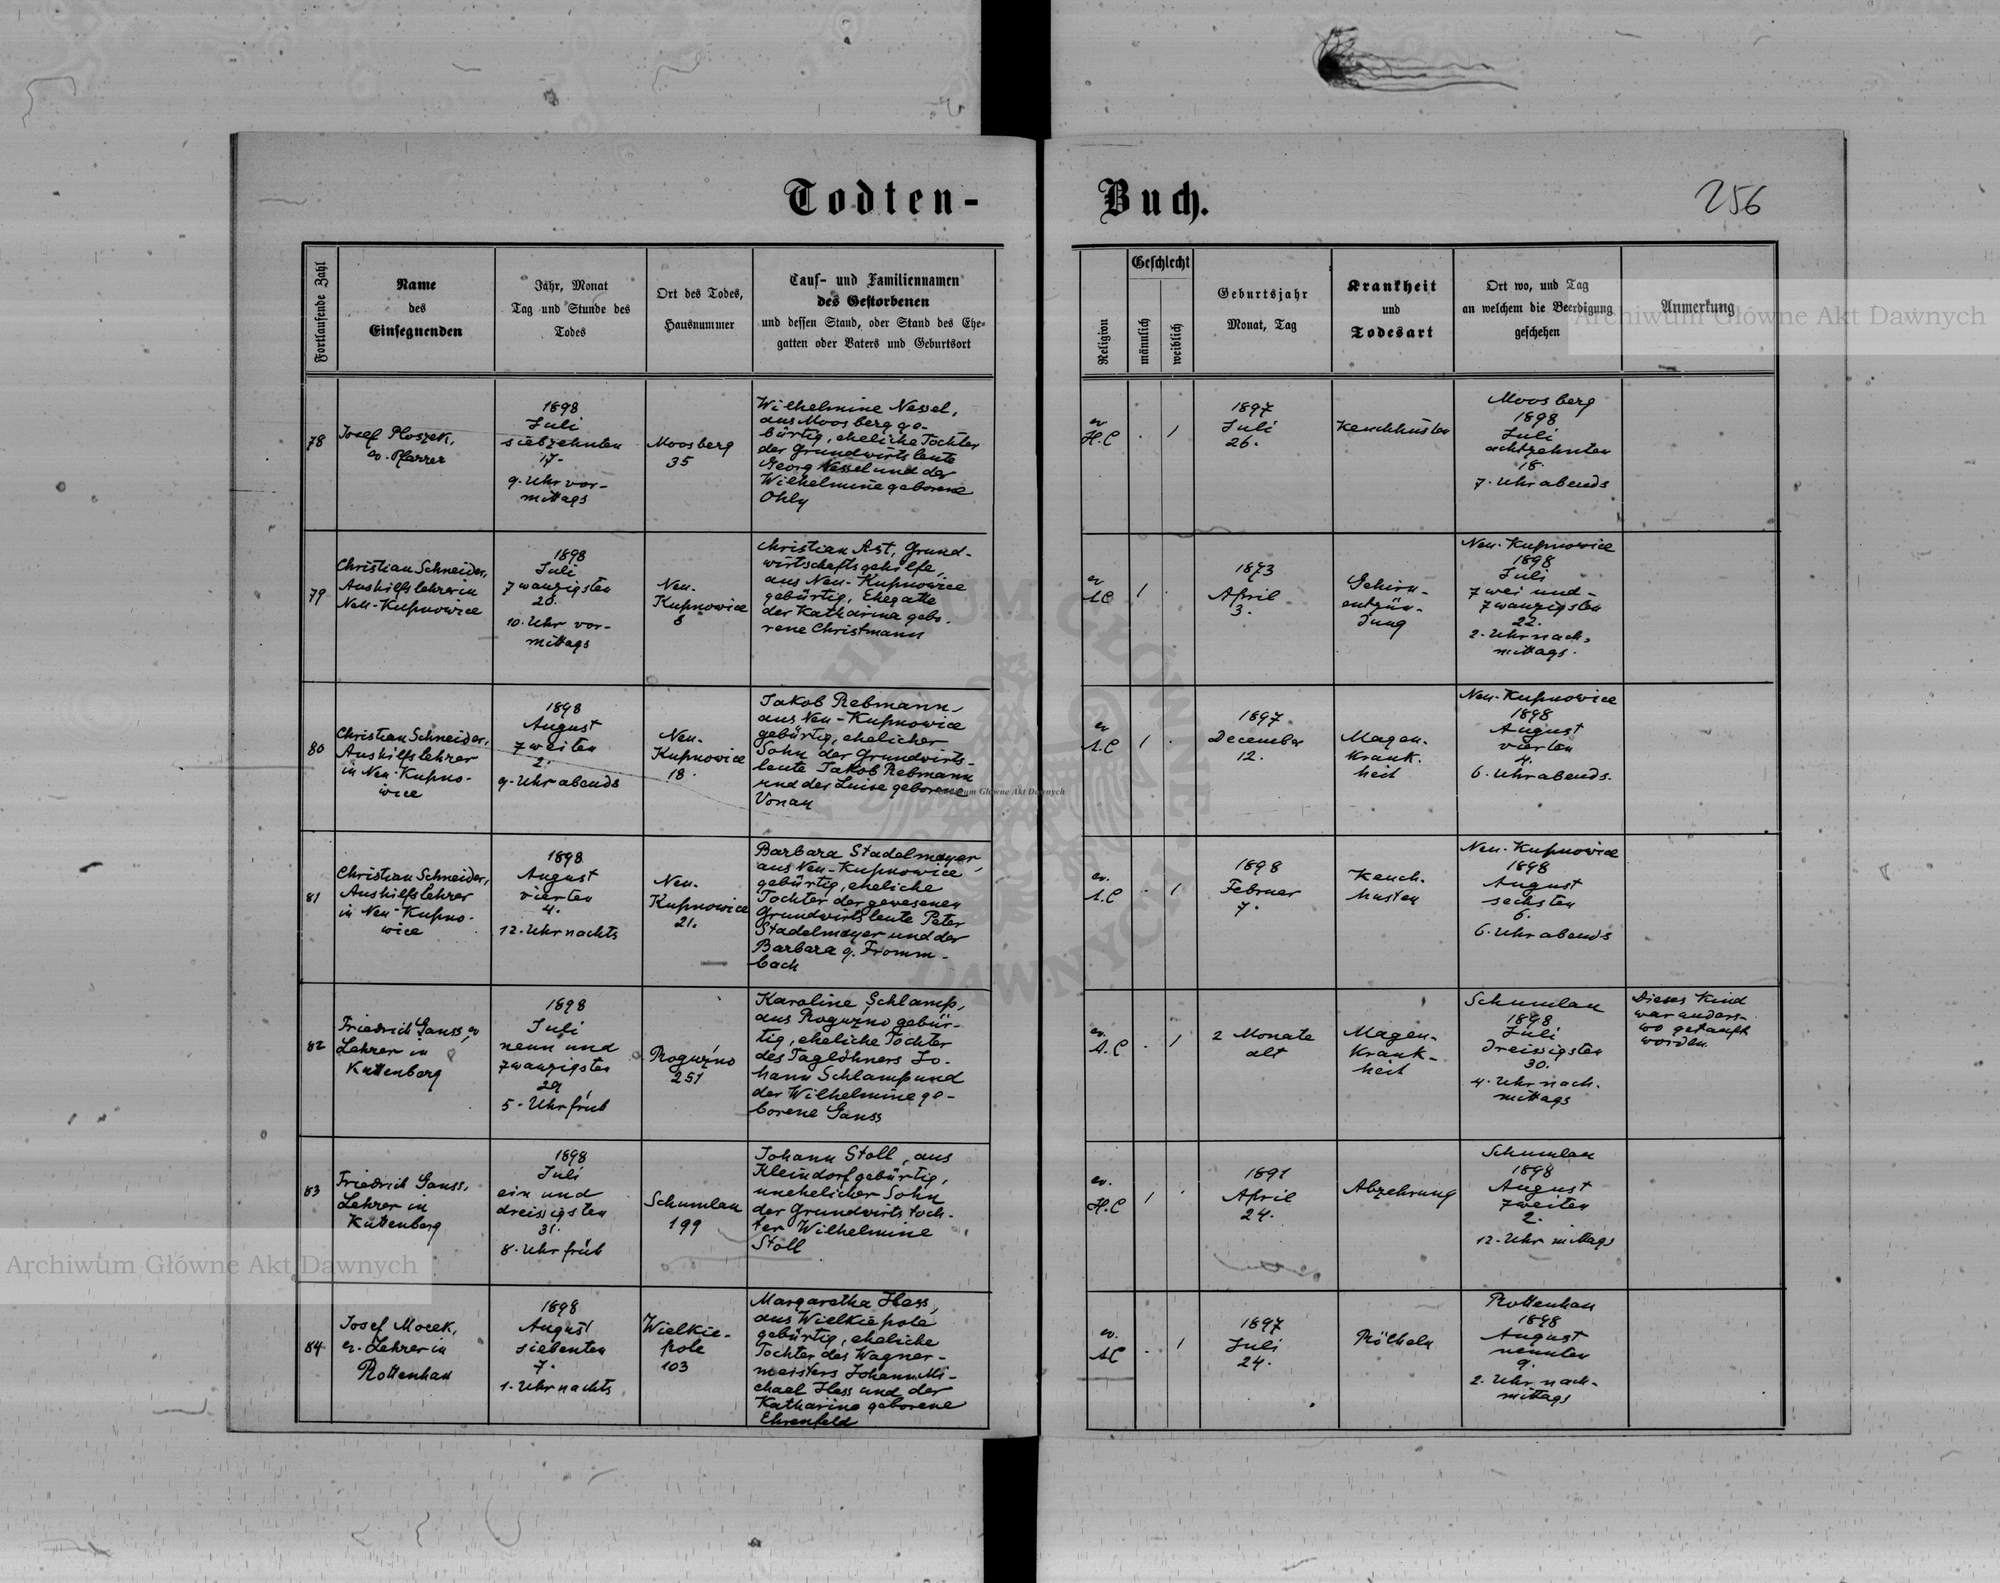 Todten-Buch.
256
Fortlaufende Zahl
Name
des
Einsegnenden
Jahr, Monat
Tag und Stunde des
Todes
Ort des Todes,
Hausnummer
Tauf- und Familiennamen
des Gestorbenen
und dessen Stand, oder Stand des Ehe-
gatten oder Vaters und Geburtsort
Religion
Geschlecht
männlich
weiblich
Geburtsjahr
Monat, Tag
Krankheit
und
Todesart
Ort wo, und Tag
an welchem die Beerdigung
geschehen
Anmerkung
78
Josef Ploszek,
ev. Pfarrer
1898
Juli
siebzehnten
17.
9. Uhr vor-
mittags
Moosberg
35
Wilhelmine Nessel,
aus Moosberg ge-
bürtig, eheliche Tochter
der Grundwirtsleute
Georg Nessel und der
Wilhelmine geborene
Ohly
ev
H.C
. /
1897
Juli
26.
Keuchhusten
Moosberg
1898
Juli
achtzehnten
18.
7. Uhr abends
79
Christian Schneider,
Aushilfslehrer in
Neu-Kupnowice
1898
Juli
zwanzigsten
20.
10. Uhr vor-
mittags
Neu-
Kupnowice
8
Christian Ast, Grund-
wirtschaftsgehilfe,
aus Neu-Kupnowice
gebürtig, Ehegatte
der Katharina gebo-
rene Christmann
ev
A.C
/ .
1873
April
3.
Gehirn-
entzün-
dung
Neu-Kupnowice
1898
Juli
zwei und-
zwanzigsten
22.
2. Uhr nach-
mittags.
80
Christian Schneider,
Aushilfslehrer
in Neu-Kupno-
wice
1898
August
zweiten
2.
9. Uhr abends
Neu-
Kupnowice
18.
Jakob Rebmann,
aus Neu-Kupnowice
gebürtig, ehelicher
Sohn der Grundwirts-
leute Jakob Rebmann
und der Luise geborene
Vonau
ev
A.C
/ .
1897
December
12.
Magen-
krank-
heit
Neu-Kupnowice
1898
August
vierten
4.
6. Uhr abends.
81
Christian Schneider,
Aushilfslehrer
in Neu-Kupno-
wice
1898
August
vierten
4.
12. Uhr nachts
Neu-
Kupnowice
21.
Barbara Stadelmayer,
aus Neu-Kupnowice
gebürtig, eheliche
Tochter der gewesenen
Grundwirtsleute Peter
Stadelmayer und der
Barbara g. Fromm-
bach
ev.
A.C
. /
1898
Februar
7.
Keuch-
husten
Neu-Kupnowice
1898
August
sechsten
6.
6. Uhr abends
82
Friedrich Gauss, ev
Lehrer in
Kuttenberg
1898
Juli
neun und
zwanzigsten
29
5. Uhr früh
Roguźno
251
Karoline Schlamp,
aus Roguźno gebür-
tig, eheliche Tochter
des Taglöhners Jo-
hann Schlamp und
der Wilhelmine ge-
borene Gauss
ev.
A.C
. /
2 Monate
alt
Magen-
krank-
heit
Schumlau
1898
Juli
dreissigsten
30.
4. Uhr nach-
mittags
Dieses Kind
war anders-
wo getauft
worden.
83
Friedrich Gauss,
Lehrer in
Kuttenberg
1898
Juli
ein und
dreissigsten
31.
8. Uhr früh
Schumlau
199
Johann Stoll, aus
Kleindorf gebürtig,
unehelicher Sohn
der Grundwirtstoch-
ter Wilhelmine
Stoll
ev.
H.C
/ .
1891
April
24.
Abzehrung
Schumlau
1898
August
zweiten
2.
12. Uhr mittags
84
Josef Mocek,
ev. Lehrer in
Rottenhan
1898
August
siebenten
7.
1. Uhr nachts
Wielkie-
pole
103
Margaretha Hess,
aus Wielkiepole
gebürtig, eheliche
Tochter des Wagner-
meisters Johann Mi-
chael Hess und der
Katharina geborene
Ehrenfeld
ev.
A.C
. /
1897
Juli
24.
Röcheln
Rottenhan
1898
August
neunten
9.
2. Uhr nach-
mittags
Archiwum Główne Akt Dawnych
Archiwum Główne Akt Dawnych
Archiwum Główne Akt Dawnych
ARCHIWUM GŁÓWNE AKT DAWNYCH